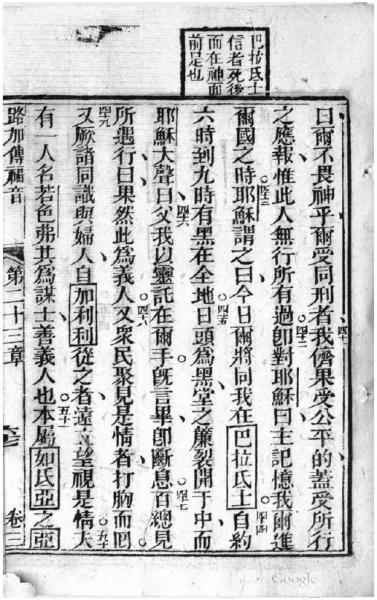 巴拉氏士
信者死後
而在神面
前是也
曰爾不畏神乎爾受同刑者四十一我儕果受公平的蓋受所行
之應報惟此人無行所有過四十二卽對耶穌曰主記憶我爾進
爾國之時四十三耶穌謂之曰今日爾將同我在巴拉氏士四十四自約
六時到九時有黑在全地四十五日頭為黑堂之簾裂開于中而
耶穌四十六大聲曰父我以靈託在爾手旣言畢卽斷息四十七百總見
所遇行曰果然此為義人四十八又衆民聚見是情者打胸而囘
四十九又厥諸同識與婦人自加利利從之者遠立望視是情五十夫
有一人名若色弗其為謀士善義人也五十一本屬如氏亞之亞
路加傳福音 第二十三章 卷三
Google